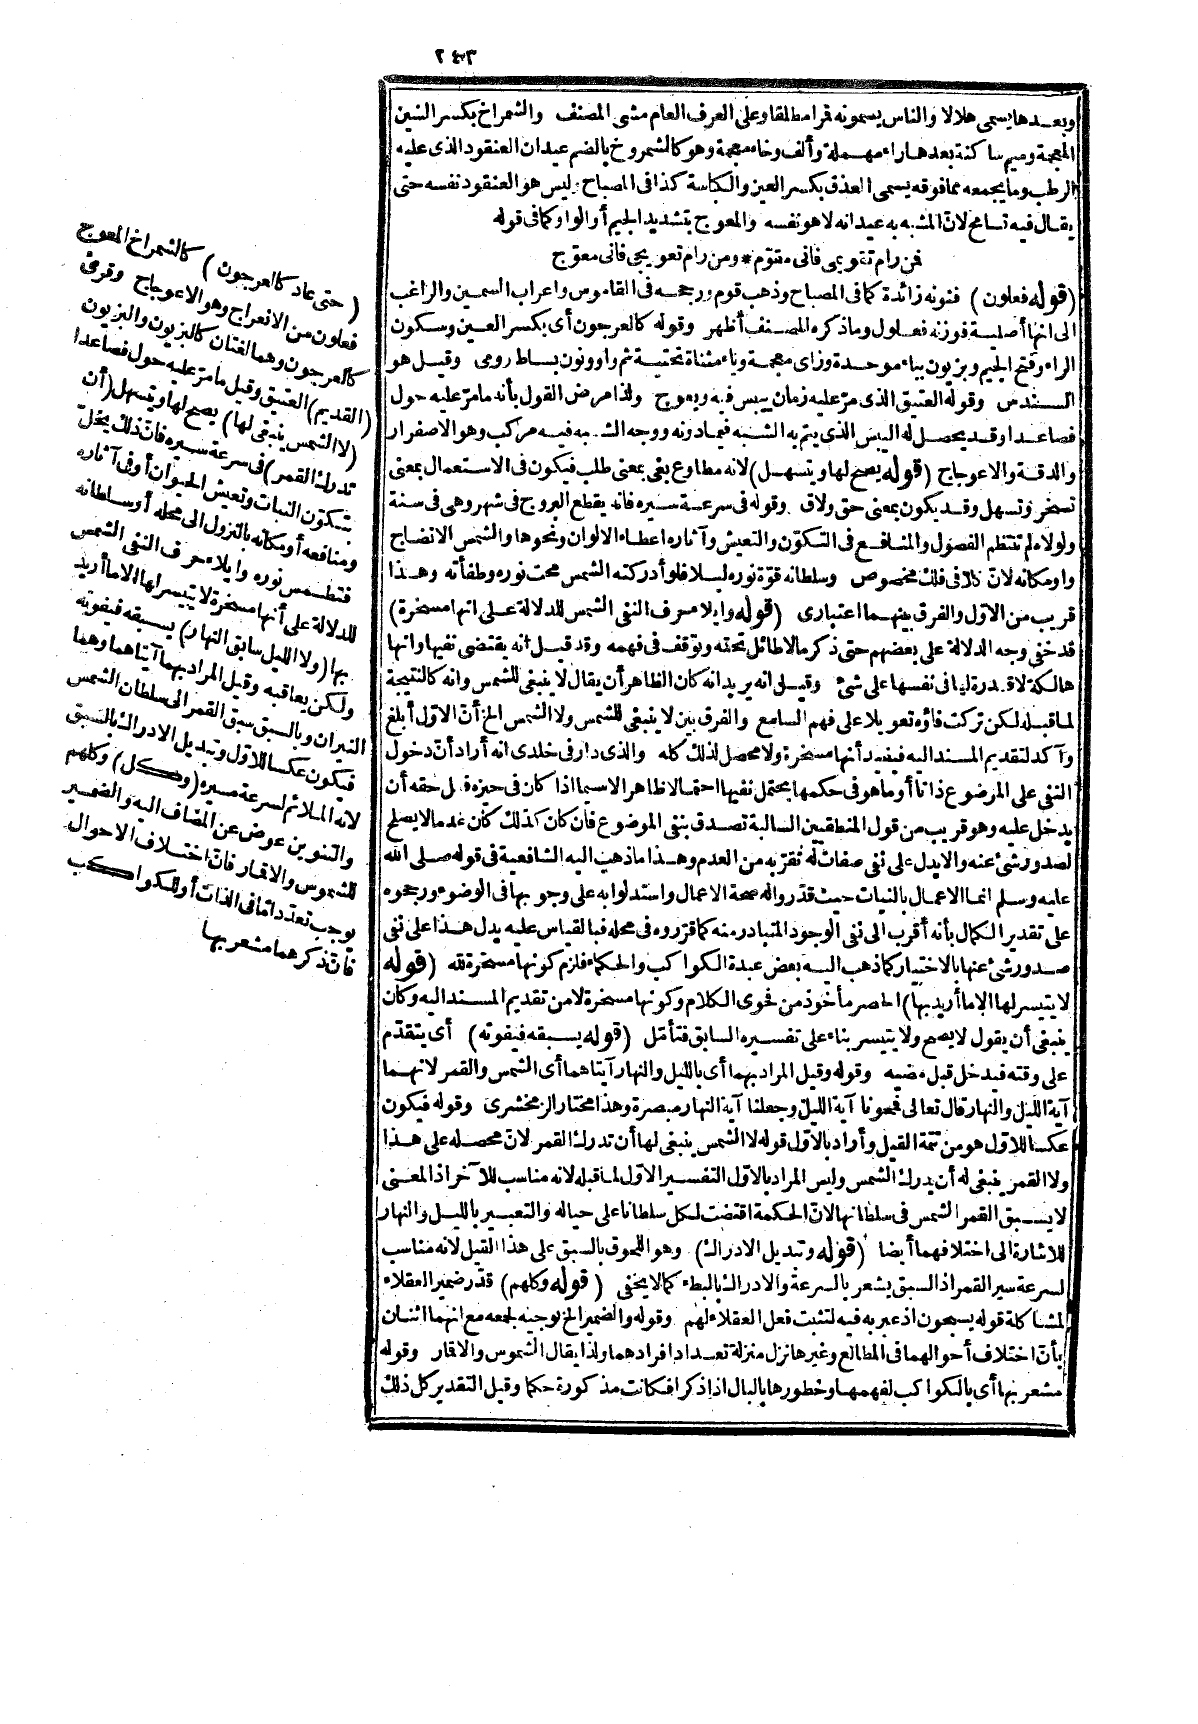 ٢٤٣
وبعدها يسمى هلالا والناس يسمونه قرا مطلقا وعلى العرف العام مشى المصنف والشمراخ بكسر الشين
المعجمة وميم ساكنة بعدها راء مهملة وألف وخاء معجمة وهو كالشمروخ بالضم عيدان العنقود الذى عليه
الرطب وما يجمعه مما فوقه يسمى العذق بكسر العين والكباسة كذا فى المصباح وليس هو العنقود نفسه حتى
يقال فيه تسامح لانّ المشبه به عيدانه لا هو نفسه والمعوج بتشديد الجيم أو الواو كما فى قوله
فمن رام تقويمى فانى مقوّم * ومن رام تعويجى فانى معوّج
(قوله فعلون) فنونه زائدة كما فى المصباح وذهب قوم ورجحه فى القاموس واعراب السمين والراغب
الى انها أصلية فوزنه فعلول وما ذكره المصنف أظهر وقوله كالعرجون أى بكسر العين وسكون
الراء وفتح الجيم وبزيون بباء موحدة وزاى معجمة وياء مثناة تحتية ثم واو ونون بساط رومى وقيل هو
السندس وقوله العتيق الذى مرّ عليه زمان يبس فيه ويعوج ولذا مرض القول بأنه ما مرّ عليه حول
فصاعدا وقد يحصل له اليبس الذى يتم به الشبه فيما دونه ووجه الشبه فيه مركب وهو الاصفرار
والدقة والاعوجاج (قوله يصح لها ويتسهل) لانه مطاوع بغى بمعنى طلب فيكون فى الاستعمال بمعنى
تسخر وتسهل وقد يكون بمعنى حق ولاق وقوله فى سرعة سيره فانه يقطع البروج فى شهر وهى فى سنة
ولولاه لم تنتظم الفصول والمنافع فى التكوّن والتعيش وآثاره اعطاء الالوان ونحوها والشمس الانضاج
وا ومكانه لانّ كلا فى فلك مخصوص وسلطانه قوّة نوره ليلا فلو أدركته الشمس محت نوره وطفأته وهذا
قريب من الاوّل والفرق بينهما اعتبارى (قوله وايلاء حرف النفى الشمس للدلالة على انها مسخرة)
قد خفى وجه الدلالة على بعضهم حتى ذكر ما لا طائل تحته وتوقف فى فهمه وقد قيل انه يقتضى نفيها وانها
هالكة لا قدرة لها فى نفسها على شئ وقيل انه يريد انه كان الظاهر أن يقال لا ينبغى للشمس وانه كالنتيجة
لما قبله لكن تركت فاؤه تعويلا على فهم السامع والفرق بين لا ينبغى للشمس ولا الشمس الخ أنّ الاوّل أبلغ
وآكد لتقديم المسند اليه فيفيد أنها مسخرة ولا محصل لذلك كله والذى دار فى خلدى انه أراد أنّ دخول
النفى على الموضوع ذاتا أو ما هو فى حكمها يحتمل نفيها احتمالا ظاهرا لا سيما اذا كان فى حيزه فعل حقه أن
يدخل عليه وهو قريب من قول المنطقيين السالبة تصدق بنفى الموضوع فان كان كذلك كان عدما لا يصلح
لصدور شئ عنه والا يدل على نفى صفات له تقرّبه من العدم وهذا ما ذهب اليه الشافعية فى قوله صلى الله
عليه وسلم انما الاعمال بالنيات حيث قدّروا له صحة الاعمال واستدلوا به على وجوبها فى الوضوء ورجحوه
على تقدير الكمال بأنه أقرب الى نفى الوجود المتبادر منه كما قرّروه فى محله فبالقياس عليه يدل هذا على نفى
صدور شئ عنها بالاختيار كما ذهب اليه بعض عبدة الكواكب والحكماء فلزم كونها مسخرة لله (قوله
لا يتيسر لها الا ما أريد بها) الحصر مأخوذ من فحوى الكلام وكونها مسخرة لا من تقديم المسند اليه وكان
ينبغى أن يقول لا يصح ولا يتيسر بناء على تفسيره السابق فتأمّل (قوله يسبقه فيفوته) أى يتقدّم
على وقته فيدخل قبل مضيه وقوله وقيل المراد بهما أى بالليل والنهار آيتاهما أى الشمس والقمر لانهما
آية الليل والنهار قال تعالى فمحونا آية الليل وجعلنا آية النهار مبصرة وهذا مختار الزمخشرى وقوله فيكون
عكسا للاوّل هو من تتمة القيل وأراد بالاوّل قوله لا الشمس ينبغى لها أن تدرك القمر لانّ محصله على هذا
ولا القمر ينبغى له أن يدرك الشمس وليس المراد بالاوّل التفسير الاوّل لما قبله لانه مناسب للآخر اذ المعنى
لا يسبق القمر الشمس فى سلطانها لانّ الحكمة اقتضت لكل سلطانا على حياله والتعبير بالليل والنهار
للاشارة الى اختلافهما أيضا (قوله وتبديل الادراك) وهو اللحوق بالسبق على هذا القيل لانه مناسب
لسرعة سير القمر اذ السبق يشعر بالسرعة والادراك بالبطء كما لا يخفى (قوله وكلهم) قدّر ضمير العقلاء
لمشاكلة قوله يسبحون اذ عبر به فيه لتثبت فعل العقلاء لهم وقوله والضمير الخ توجيه لجمعه مع انهما اثنان
بأنّ اختلاف أحوالهما فى المطالع وغيرها نزل منزلة تعداد افرادهما ولذا يقال الشموس والاقمار وقوله
مشعر بها أى بالكواكب لفهمها وخطورها بالبال اذا ذكرا فكانت مذكورة حكما وقيل التقدير كل ذلك
(حتى عاد كالعرجون) كالشمراخ المعوج
فعلون من الانعراج وهو الاعوجاج وقرئ
كالعرجون وهما لغتان كالبزيون والبزيون
(القديم) العتيق وقيل ما مرّ عليه حول فصاعدا
(لا الشمس ينبغى لها) يصح لها ويتسهل (أن
تدرك القمر) فى سرعة سيره فانّ ذلك يخلّ
بتكوّن النبات وتعيش الحيوان أو فى آثاره
ومنافعه أو مكانه بالنزول الى محله أو سلطانه
فتطمس نوره وايلاء حرف النفى الشمس
للدلالة على أنها مسخرة لا يتيسر لها الا ما أريد
بها (ولا الليل سابق النهار) يسبقه فيفوته
ولكن يعاقبه وقيل المراد بهما آيتاهما وهما
النيران وبالسبق سبق القمر الى سلطان الشمس
فيكون عكسا للاوّل وتبديل الادراك بالسبق
لانه الملائم لسرعة سيره (وكل) وكلهم
والتنوين عوض عن المضاف اليه والضمير
للشموس والاقمار فانّ اختلاف الاحوال
يوجب تعدّدا ما فى الذات أو للكواكب
فانّ ذكرهما مشعر بها